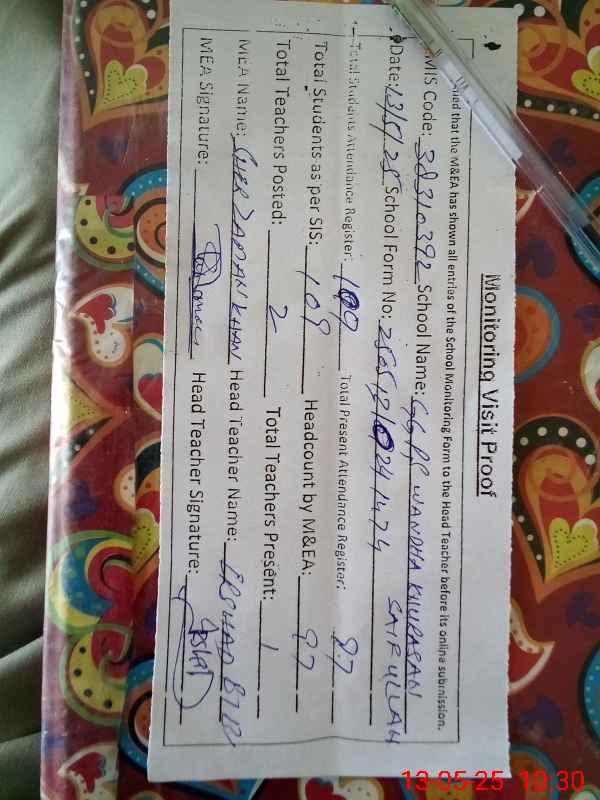 Monitoring Visit Proof
that the M&EA has shown all entries of the School Monitoring Form to the Head Teacher before its online submission.
MIS Code: 38310392 School Name: GGPS WANDHA KHURASAN
SAIFULLAH
Date: 13/5/25 School Form No:
Total Students Attendance Register: 109 Total Present Attendance Register: 97
Total Students as per SIS: 109 Headcount by M&EA: 97
Total Teachers Posted: 2 Total Teachers Present: 1
MEA Name: SHER ZAMAN KHAN Head Teacher Name: BIBI
MEA Signature: Head Teacher Signature:
13-05-25 10:30